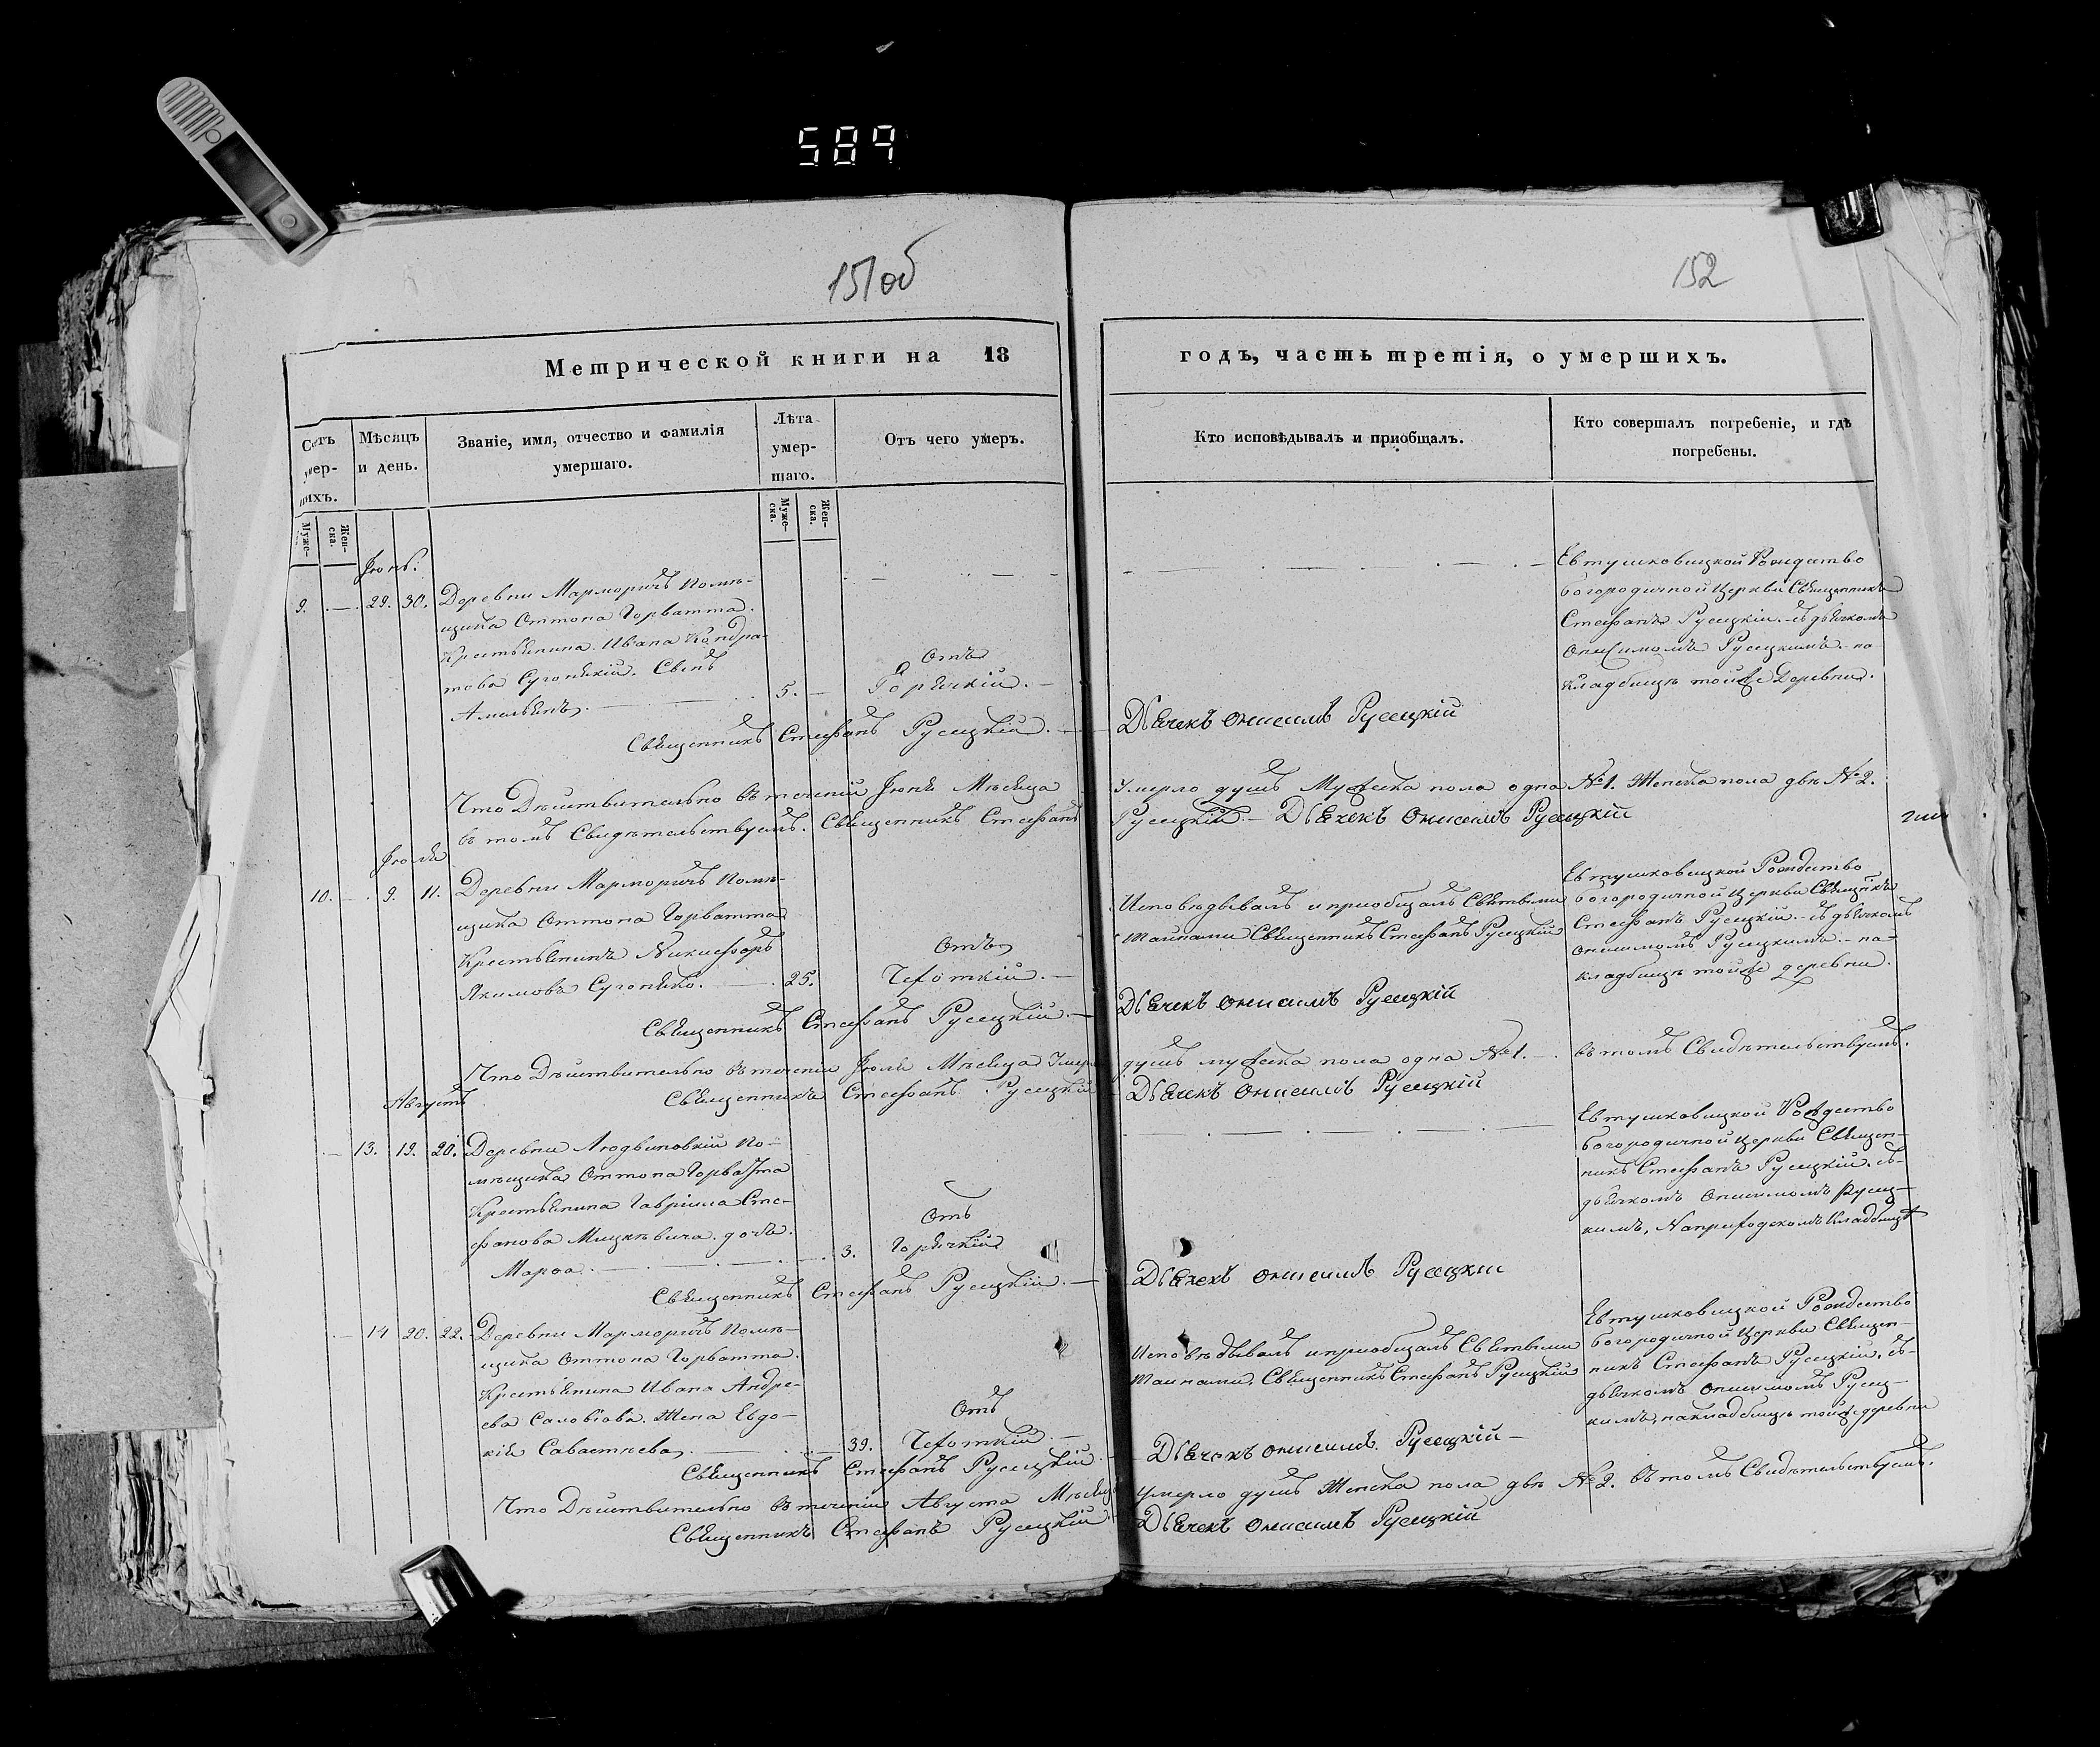 589
151об
152
Метрической книги на 18
годъ, часть третія, о умершихъ.
Счетъ умер-
шихъ.
Мѣсяцъ
и день.
Званіе, имя, отчество и фамилія
умершаго.
Лѣта
умер-
шаго.
Отъ чего умеръ.
Кто исповѣдывалъ и пріобщалъ.
Кто совершалъ погребеніе, и гдѣ
погребены.
Муже-
Жен-
ска.
Муже-
ска.
Жен-
ска.
Іюнь.
9. — 29. 30. Деревни Марморичъ Помѣ-
щика Оттона Горватта
Крестьянина Ивана Кондра-
това Сугоняки. Сынъ
Амельянъ. 5. —
Отъ
Горячкій. —
Евтушковицкой Рождество
богородичной Церкви Священникъ
Стефанъ Русецкій. съ дьячкомъ
Онисимомъ Русецкимъ. на
Кладбищѣ тойже Деревни.
Священникъ Стефанъ Русецкій. — Дьячекъ Онисимъ Русецкій
Что Дѣйствительно въ теченіи Іюня Мѣсяца Умерло душъ Мужеска пола одна №1. Женска пола двѣ №2.
въ томъ Свидѣтельствуемъ. Священникъ Стефанъ Русецкій. — Дьячекъ Онисимъ Русецкій
Іюля
10. — 9. 11. Деревни Марморичъ Помѣ-
щика Оттона Горватта
Крестьянинъ Никифоръ
Якимовъ Сугоняко. 25.
Отъ
Чехоткій. —
Исповѣдывалъ и пріобщалъ Святыми
Тайнами Священникъ Стефанъ Русецкій
Евтушковицкой Рождество
богородичной Церкви Священникъ
Стефанъ Русецкій. съ дьячкомъ
Онисимомъ Русецкимъ. — на
кладбищѣ тойже деревни.
Священникъ Стефанъ Русецкій. — Дьячекъ Онисимъ Русецкій
Что Дѣйствительно въ теченіи Іюля Мѣсяца Умерло душъ мужеска пола одна №1. — въ томъ Свидѣтельствуемъ.
Священникъ Стефанъ Русецкій Дьячекъ Онисимъ Русецкій
Августъ
— 13. 19. 20. Деревни Людвиновкій По-
мѣщика Оттона Горватта
Крестьянина Гавріила Сте-
фанова Мицкѣвича. дочь
Марѳа. — 3.
Отъ
Горячкій
Евтушковицкой Рождество
богородичной Церкви Священ-
никъ Стефанъ Русецкій. съ
дьячкомъ Онисимомъ Русец-
кимъ, На приходскомъ Кладбищѣ
Священникъ Стефанъ Русецкій. — Дьячекъ Онисимъ Русецкій
— 14 20. 22. Деревни Марморичъ Помѣ-
щика Оттона Горватта.
Крестьянина Ивана Андре-
ева Саловіова. Жена Евдо-
кія Савастѣева. — 39.
Отъ
Чехоткій. —
Исповѣдывалъ и пріобщалъ Святыми
Тайнами, Священникъ Стефанъ Русецкій
Евтушковицкой Рождество
богородичной Церкви Священ-
никъ Стефанъ Русецкій. съ
дьячкомъ Онисимомъ Русец-
кимъ, на кладбищѣ тойже деревни
Священникъ Стефанъ Русецкій. — Дьячекъ Онисимъ Русецкій —
Что Дѣйствительно въ теченіи Августа Мѣсяца Умерло душъ Женска пола двѣ №2. въ томъ Свидѣтельствуемъ.
Священникъ Стефанъ Русецкій Дьячекъ Онисимъ Русецкій